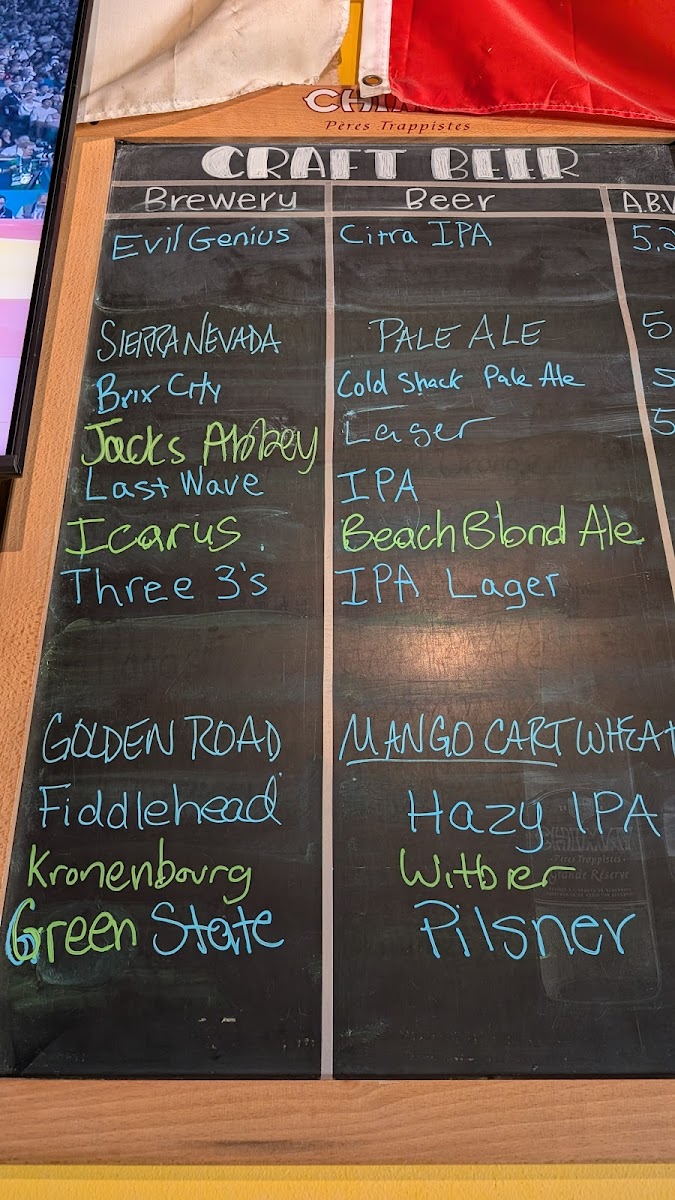 CHIMAY
Pères Trappistes
CRAFT BEER
Brewery Beer A.BV
Evil Genius Citra IPA 5.2
SIERRA NEVADA PALE ALE 5
Brix City Cold Shack Pale Ale 5
Jacks Abbey Lager 5
Last Wave IPA
Icarus Beach Blond Ale
Three 3's IPA Lager
GOLDEN ROAD MANGO CART WHEAT
Fiddlehead Hazy IPA
Kronenbourg Witbier
Green State Pilsner
CHIMAY
Pères Trappistes
Grande Réserve